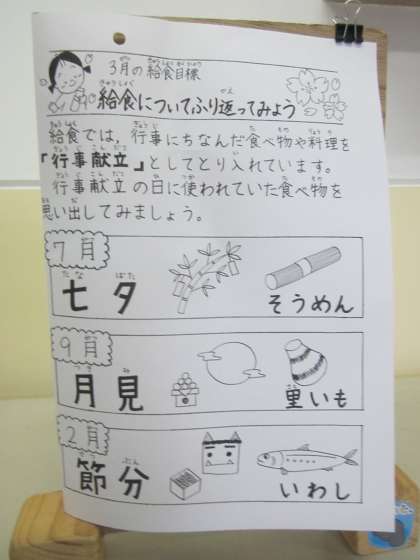 3月の給食目標
給食についてふり返ってみよう
給食では、行事にちなんだ食べ物や料理を
「行事献立」としてとり入れています。
行事献立の日に使われていた食べ物を
思い出してみましょう。
7月
七夕 そうめん
9月
月見 里いも
2月
節分 いわし